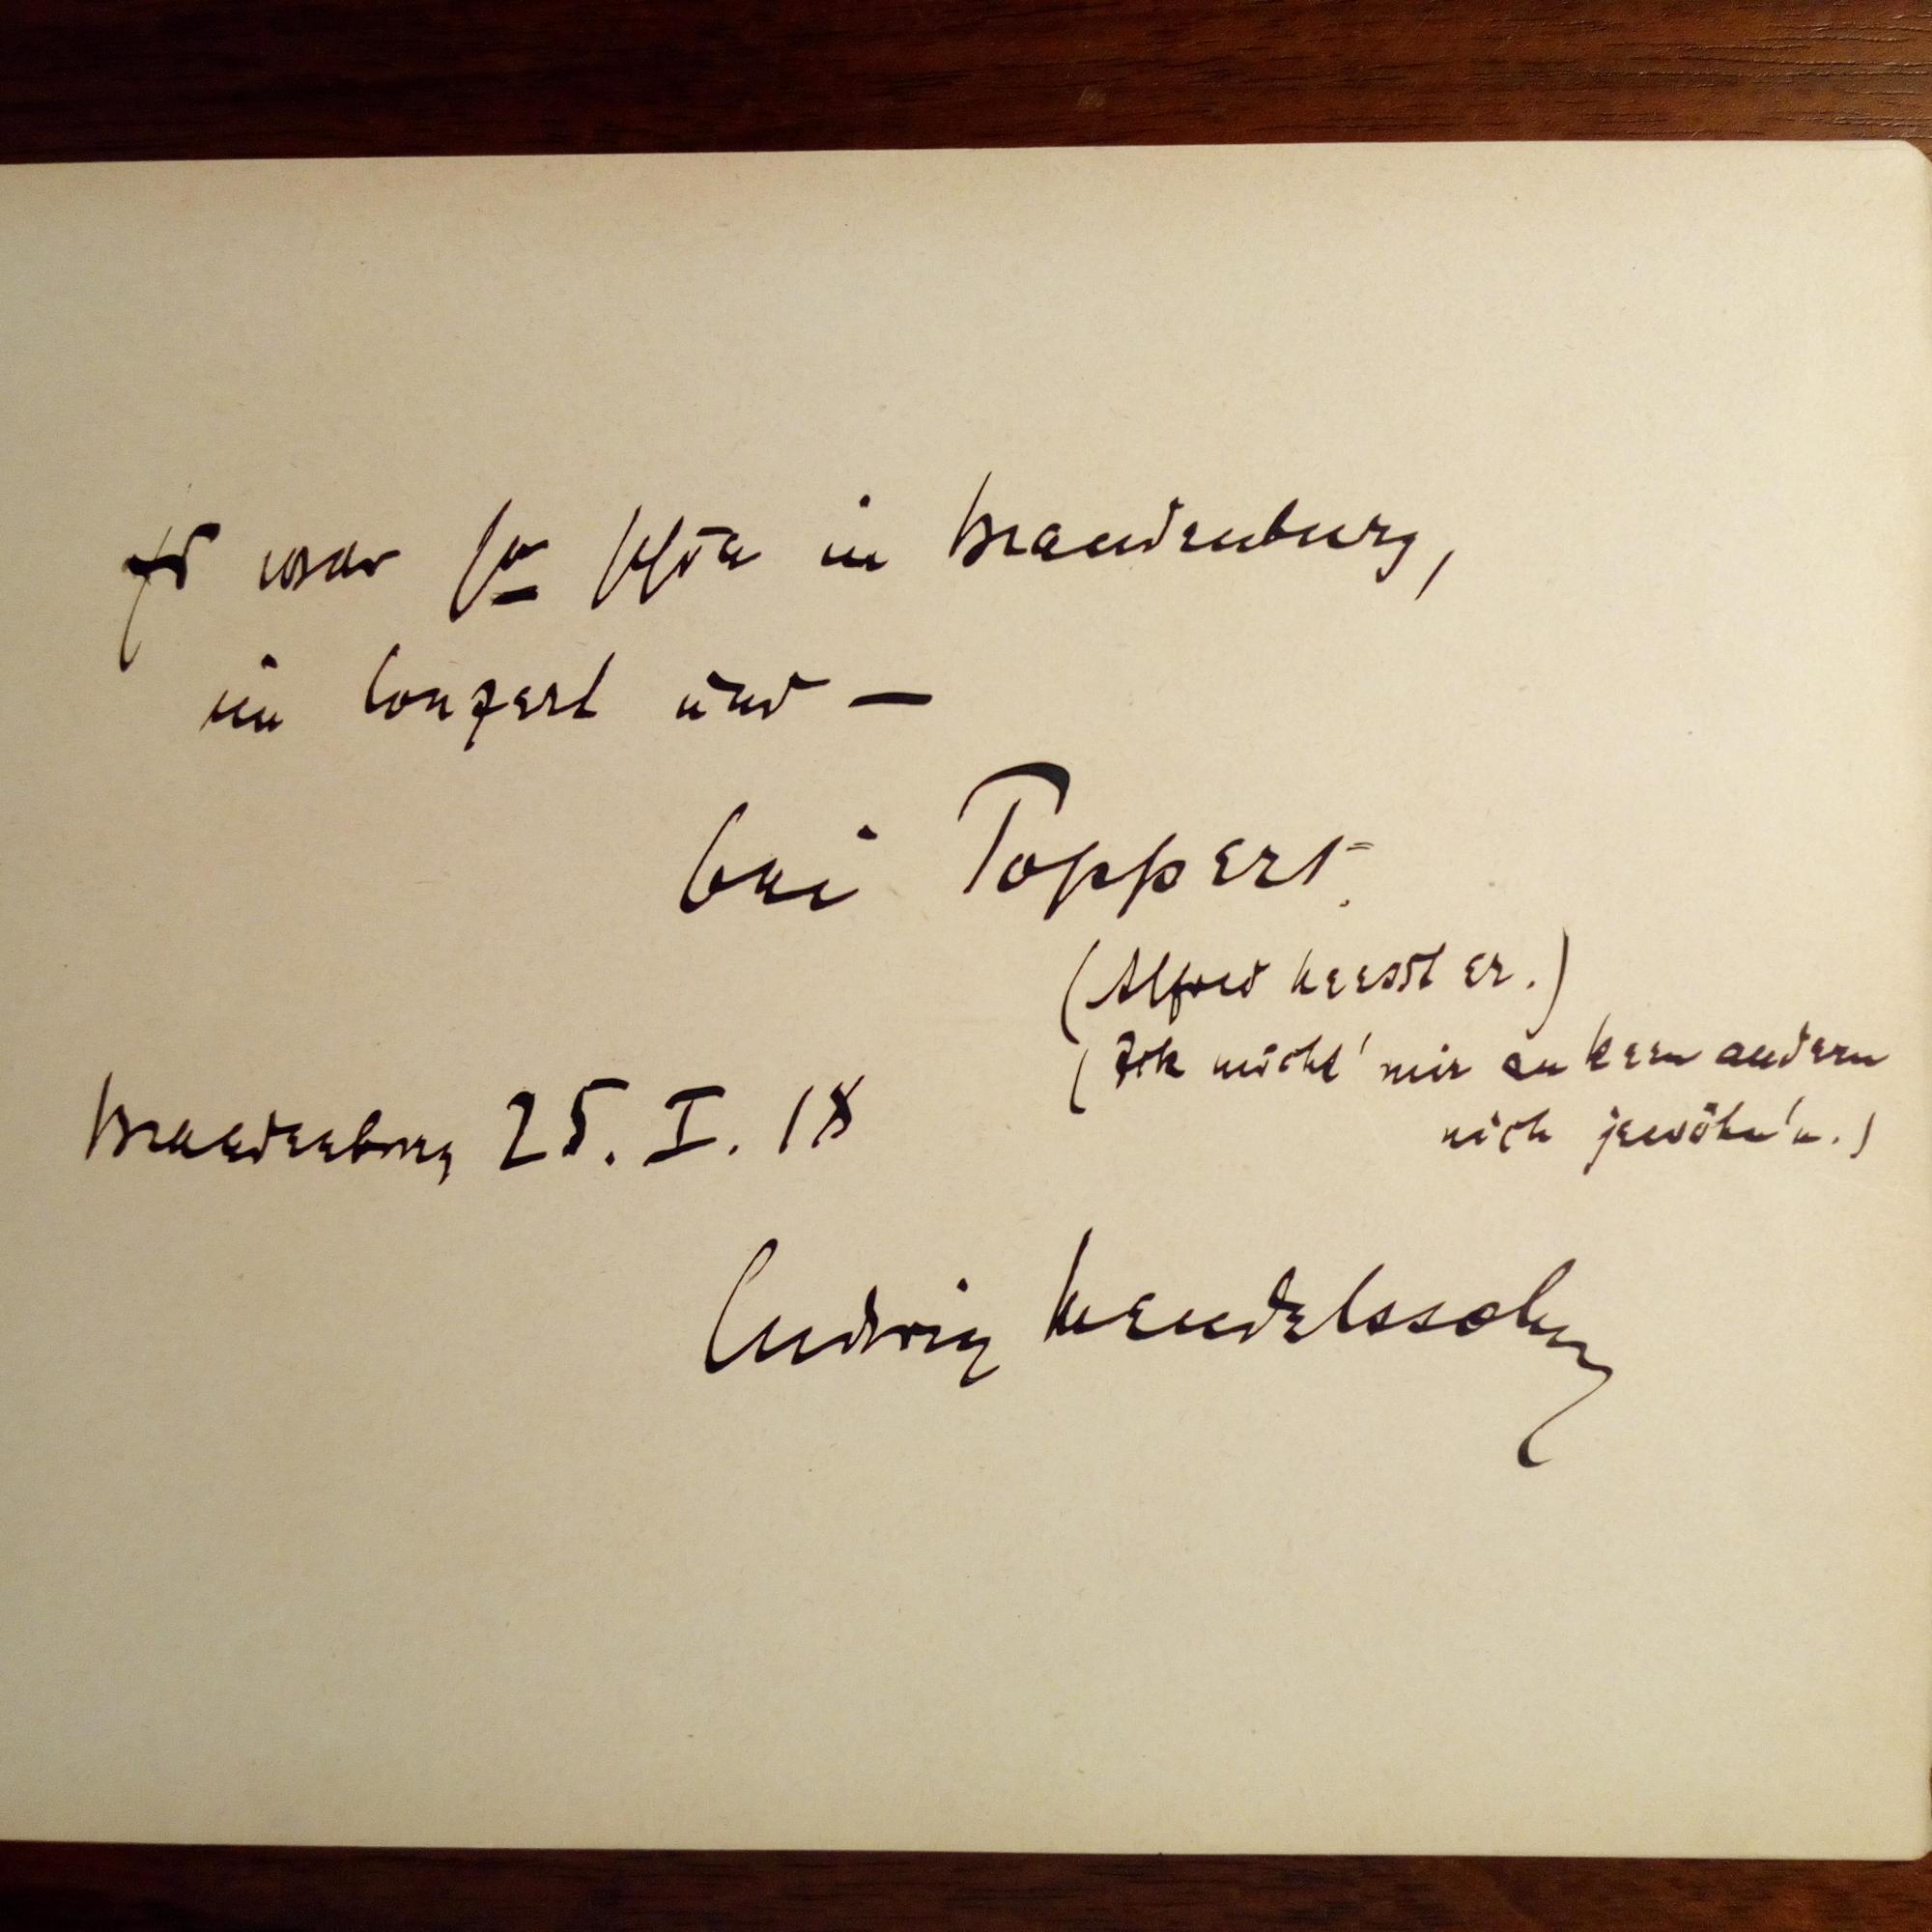 Es war so schön in Brandenburg,
im Conzert und –
bei Toppers.
(Alfred heesst er.)
(Ick möcht' mir an keen andern
nich jewöhn'n.)
Brandenburg 25. I. 18
Ludwig Mendelssohn